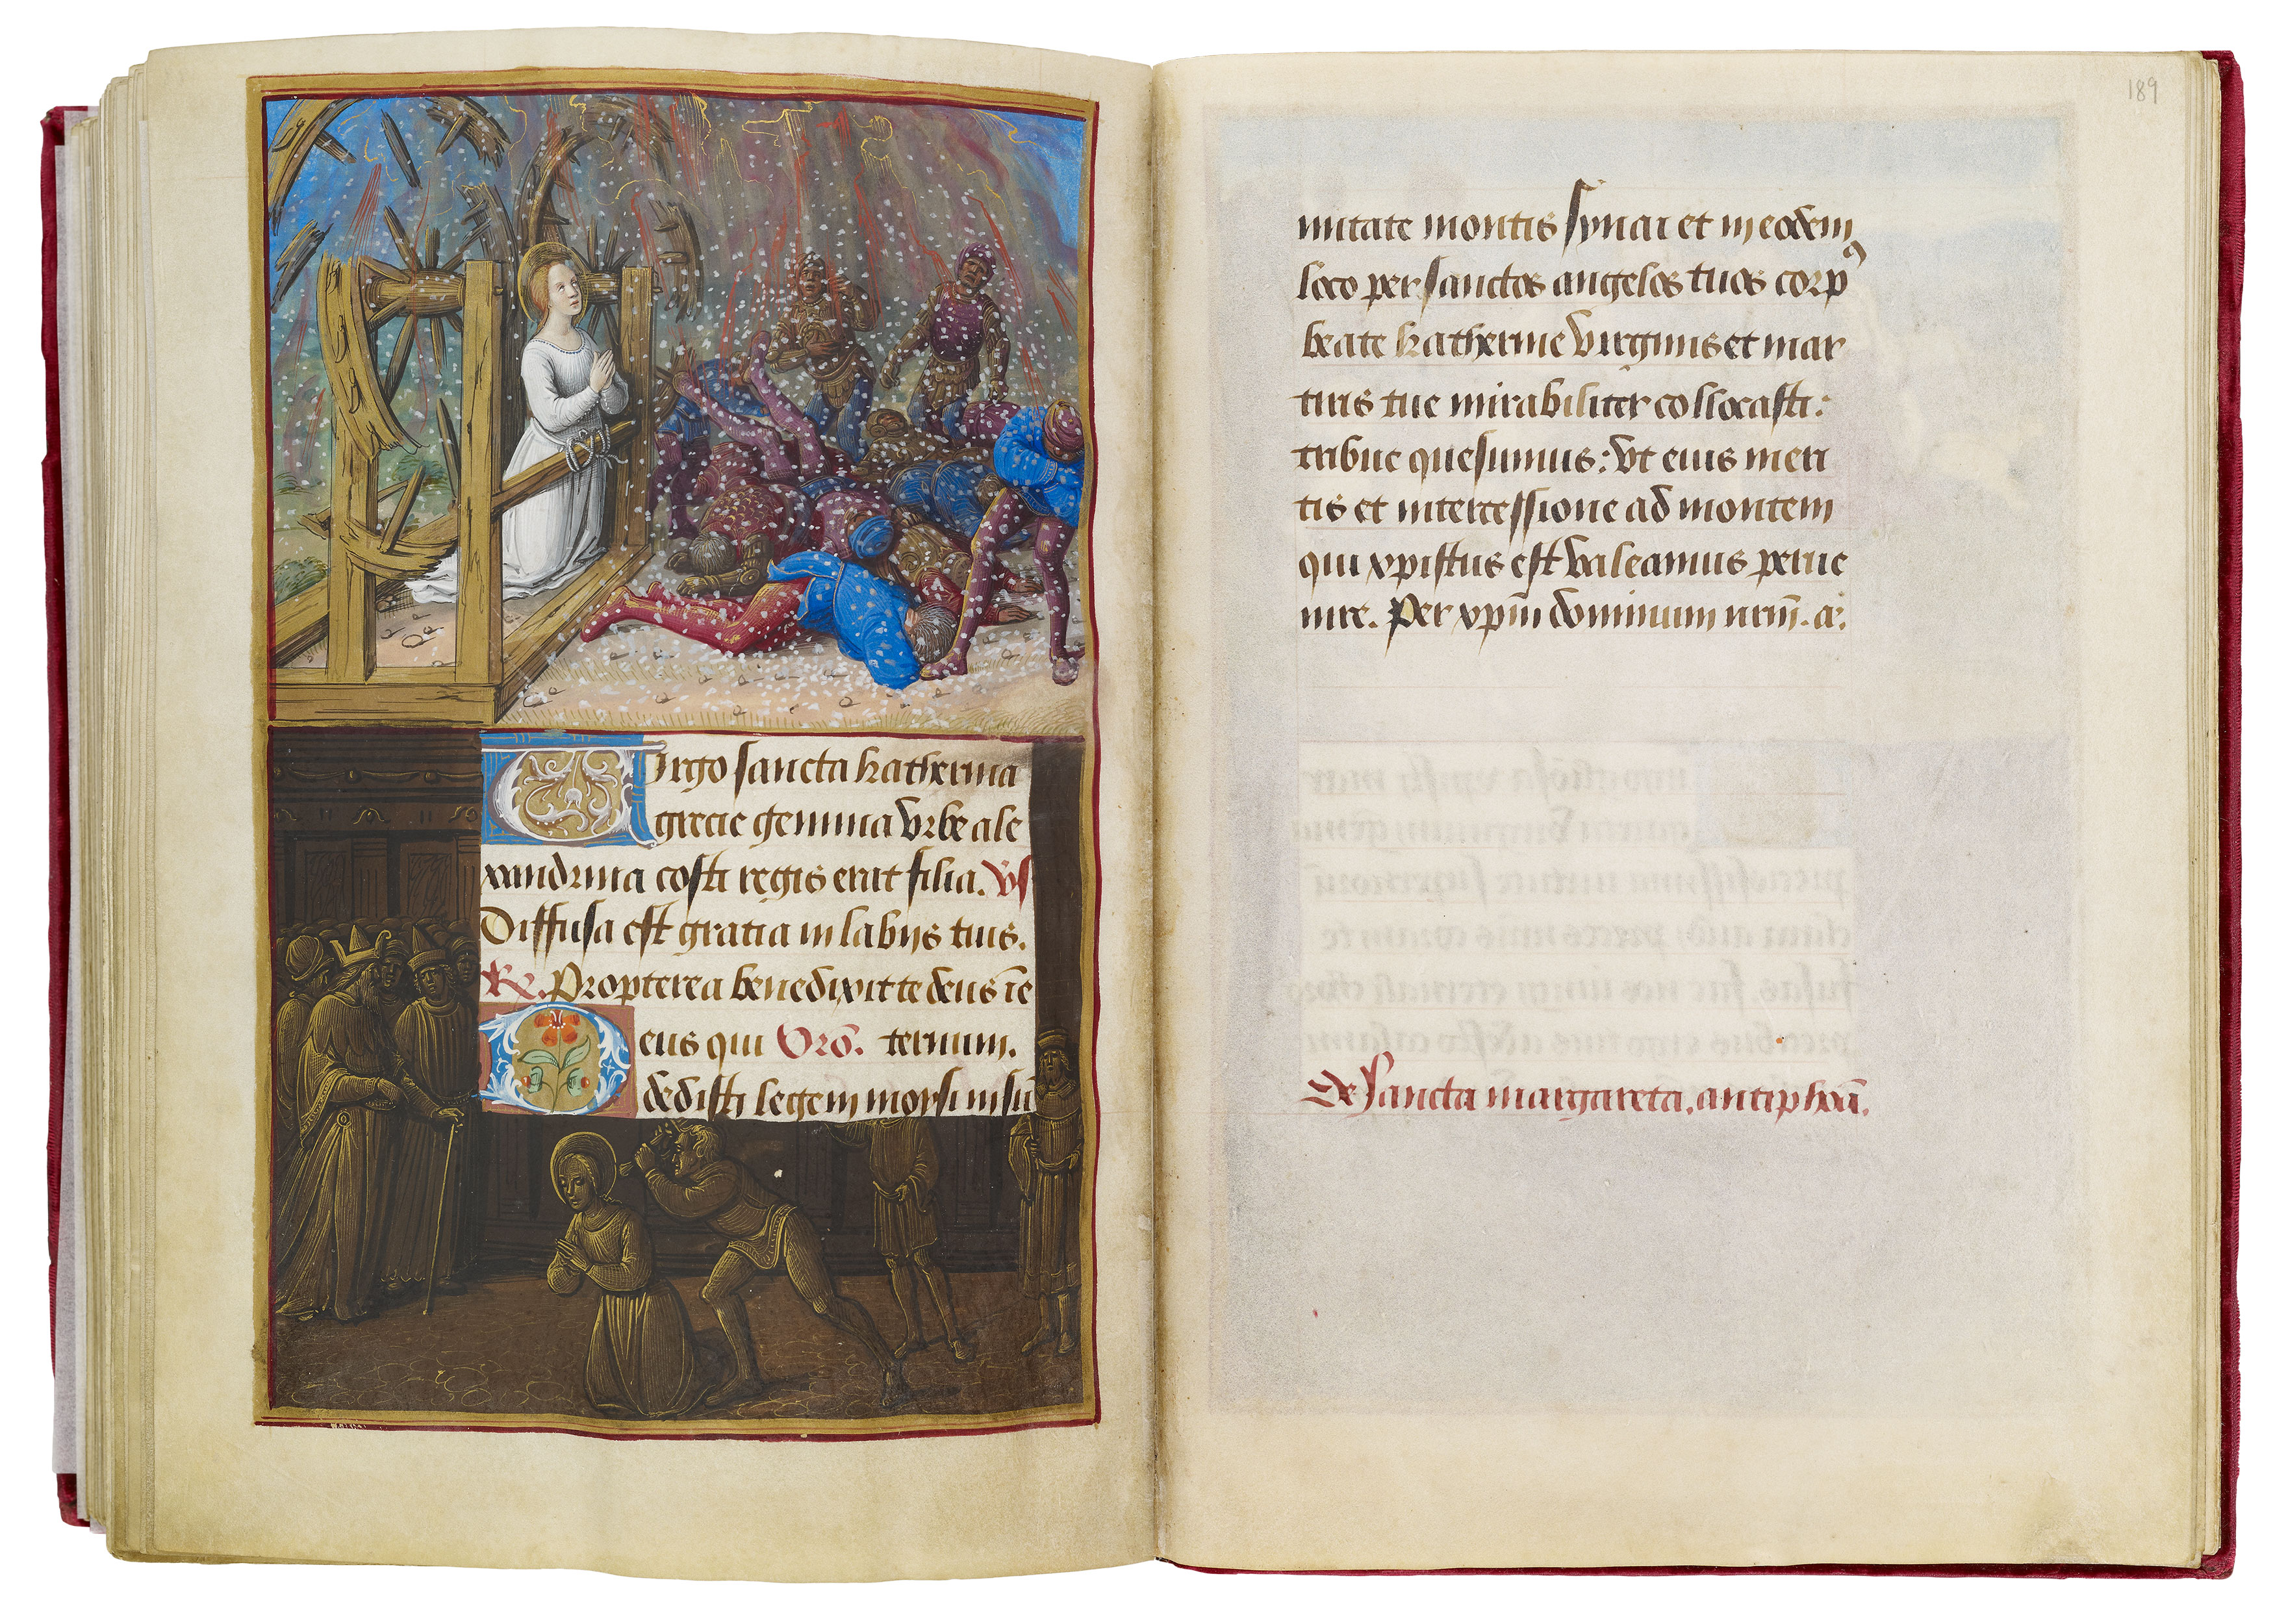 Virgo sancta katherina
grecie gemma vrbe ale
xandrina costi regis erat filia. Vs
Diffusa est gratia in labijs tuis.
Re. Propterea benedixit te deus i̅e
Deus qui Oro̅. ternum.
dedisti legem moysi in su̅
189
mitate montis synai et in eodem
loco per sanctos angelos tuos corpꝰ
beate katherine virginis et mar
tiris tue mirabiliter collocasti:
tribue quesumus: vt eius meri
tis et intercessione ad montem
qui xpistus est valeamus perue
nire. Per xpm̅ dominum nrm̅. a.
De sancta margareta. antiphoa̅.